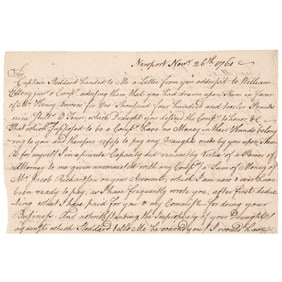 Newport Novr 26th 1760
Sir
Captain Stoddard handed to me a Letter from you addressed to William
Ellery junr & Compy advising them that you had drawn upon them in favor
of Mr Henry Bowers for One Thousand four hundred and twelve Pounds
which Draught you desired the Compy to honor &c
That which I supposed to be a Compy have no Money in their Hands belong-
ing to you and therefore refuse to pay any Draught made by you upon them
As for myself in a private Capacity I did receive by Virtue of a Power of
Attorney to me given a Sum of Money of
Mr Jacob Richardson on your Account, which I am now & ever have
been ready to pay, as I have frequently wrote you, after first deduct-
ing what I have paid for you & my Commissn for doing your
Business. And notwithstanding the Impropriety of your Draught
against which Stoddard tells Me he warned you I would have